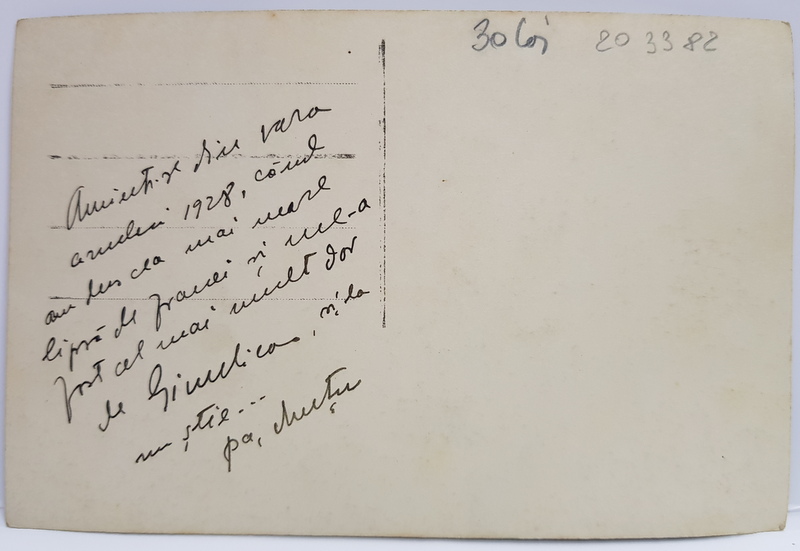 30 lei 203382
Amintire din vara
anului 1928, când
am dus cea mai mare
lipsă de franci și mi-a
fost cel mai mult dor
de Ginulica, și ea
nu știe...
pa,